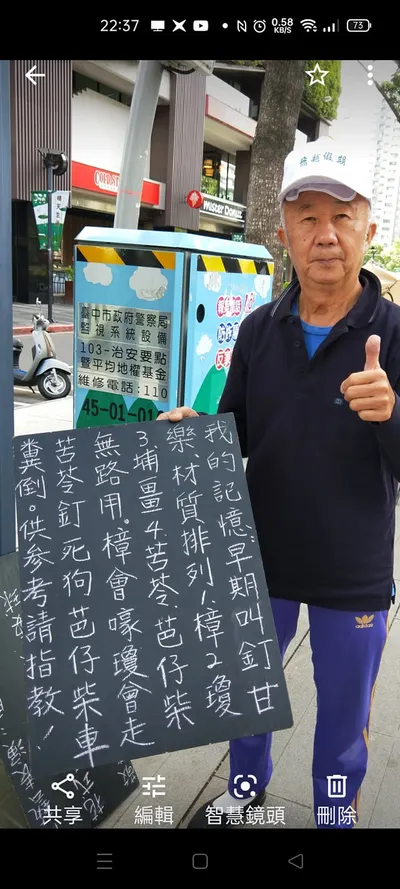 22:37
0.58
KB/S
73
Mister Donut
臺中市政府警察局
監視系統設備
103-治安要點
暨平均地權基金
維修電話:110
我的記憶:早期叫釘甘
樂.材質排列1.樟2.瓊
3.埔畺4.苦苓.芭仔柴
無路用。樟會嚎瓊會走
苦苓釘死狗芭仔柴車
糞倒。供參考請指教!
adidas
共享
編輯
智慧鏡頭
刪除